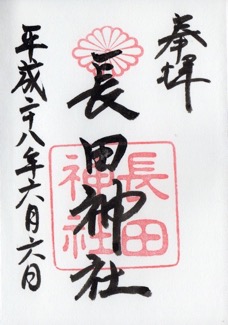 奉拝
長田神社
長田神社
平成二十八年六月六日